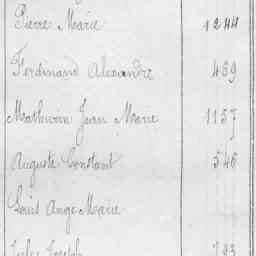 Pierre Marie 1244
Ferdinand Alexandre 469
Mathurin Jean Marie 1157
Auguste Constant 546
Louis Ange Marie
Jules Joseph 793